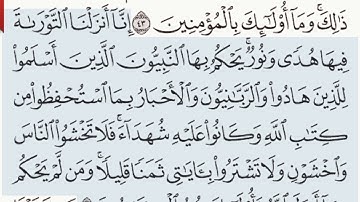 ذَٰلِكَۚ وَمَآ أُوْلَٰٓئِكَ بِٱلْمُؤْمِنِينَ ٤٣ إِنَّآ أَنزَلْنَا ٱلتَّوْرَىٰةَ
فِيهَا هُدًى وَنُورٌۚ يَحْكُمُ بِهَا ٱلنَّبِيُّونَ ٱلَّذِينَ أَسْلَمُوا۟
لِلَّذِينَ هَادُوا۟ وَٱلرَّبَّٰنِيُّونَ وَٱلْأَحْبَارُ بِمَا ٱسْتُحْفِظُوا۟ مِن
كِتَٰبِ ٱللَّهِ وَكَانُوا۟ عَلَيْهِ شُهَدَآءَۚ فَلَا تَخْشَوُا۟ ٱلنَّاسَ
وَٱخْشَوْنِ وَلَا تَشْتَرُوا۟ بِـَٔايَٰتِى ثَمَنًا قَلِيلًاۚ وَمَن لَّمْ يَحْكُم